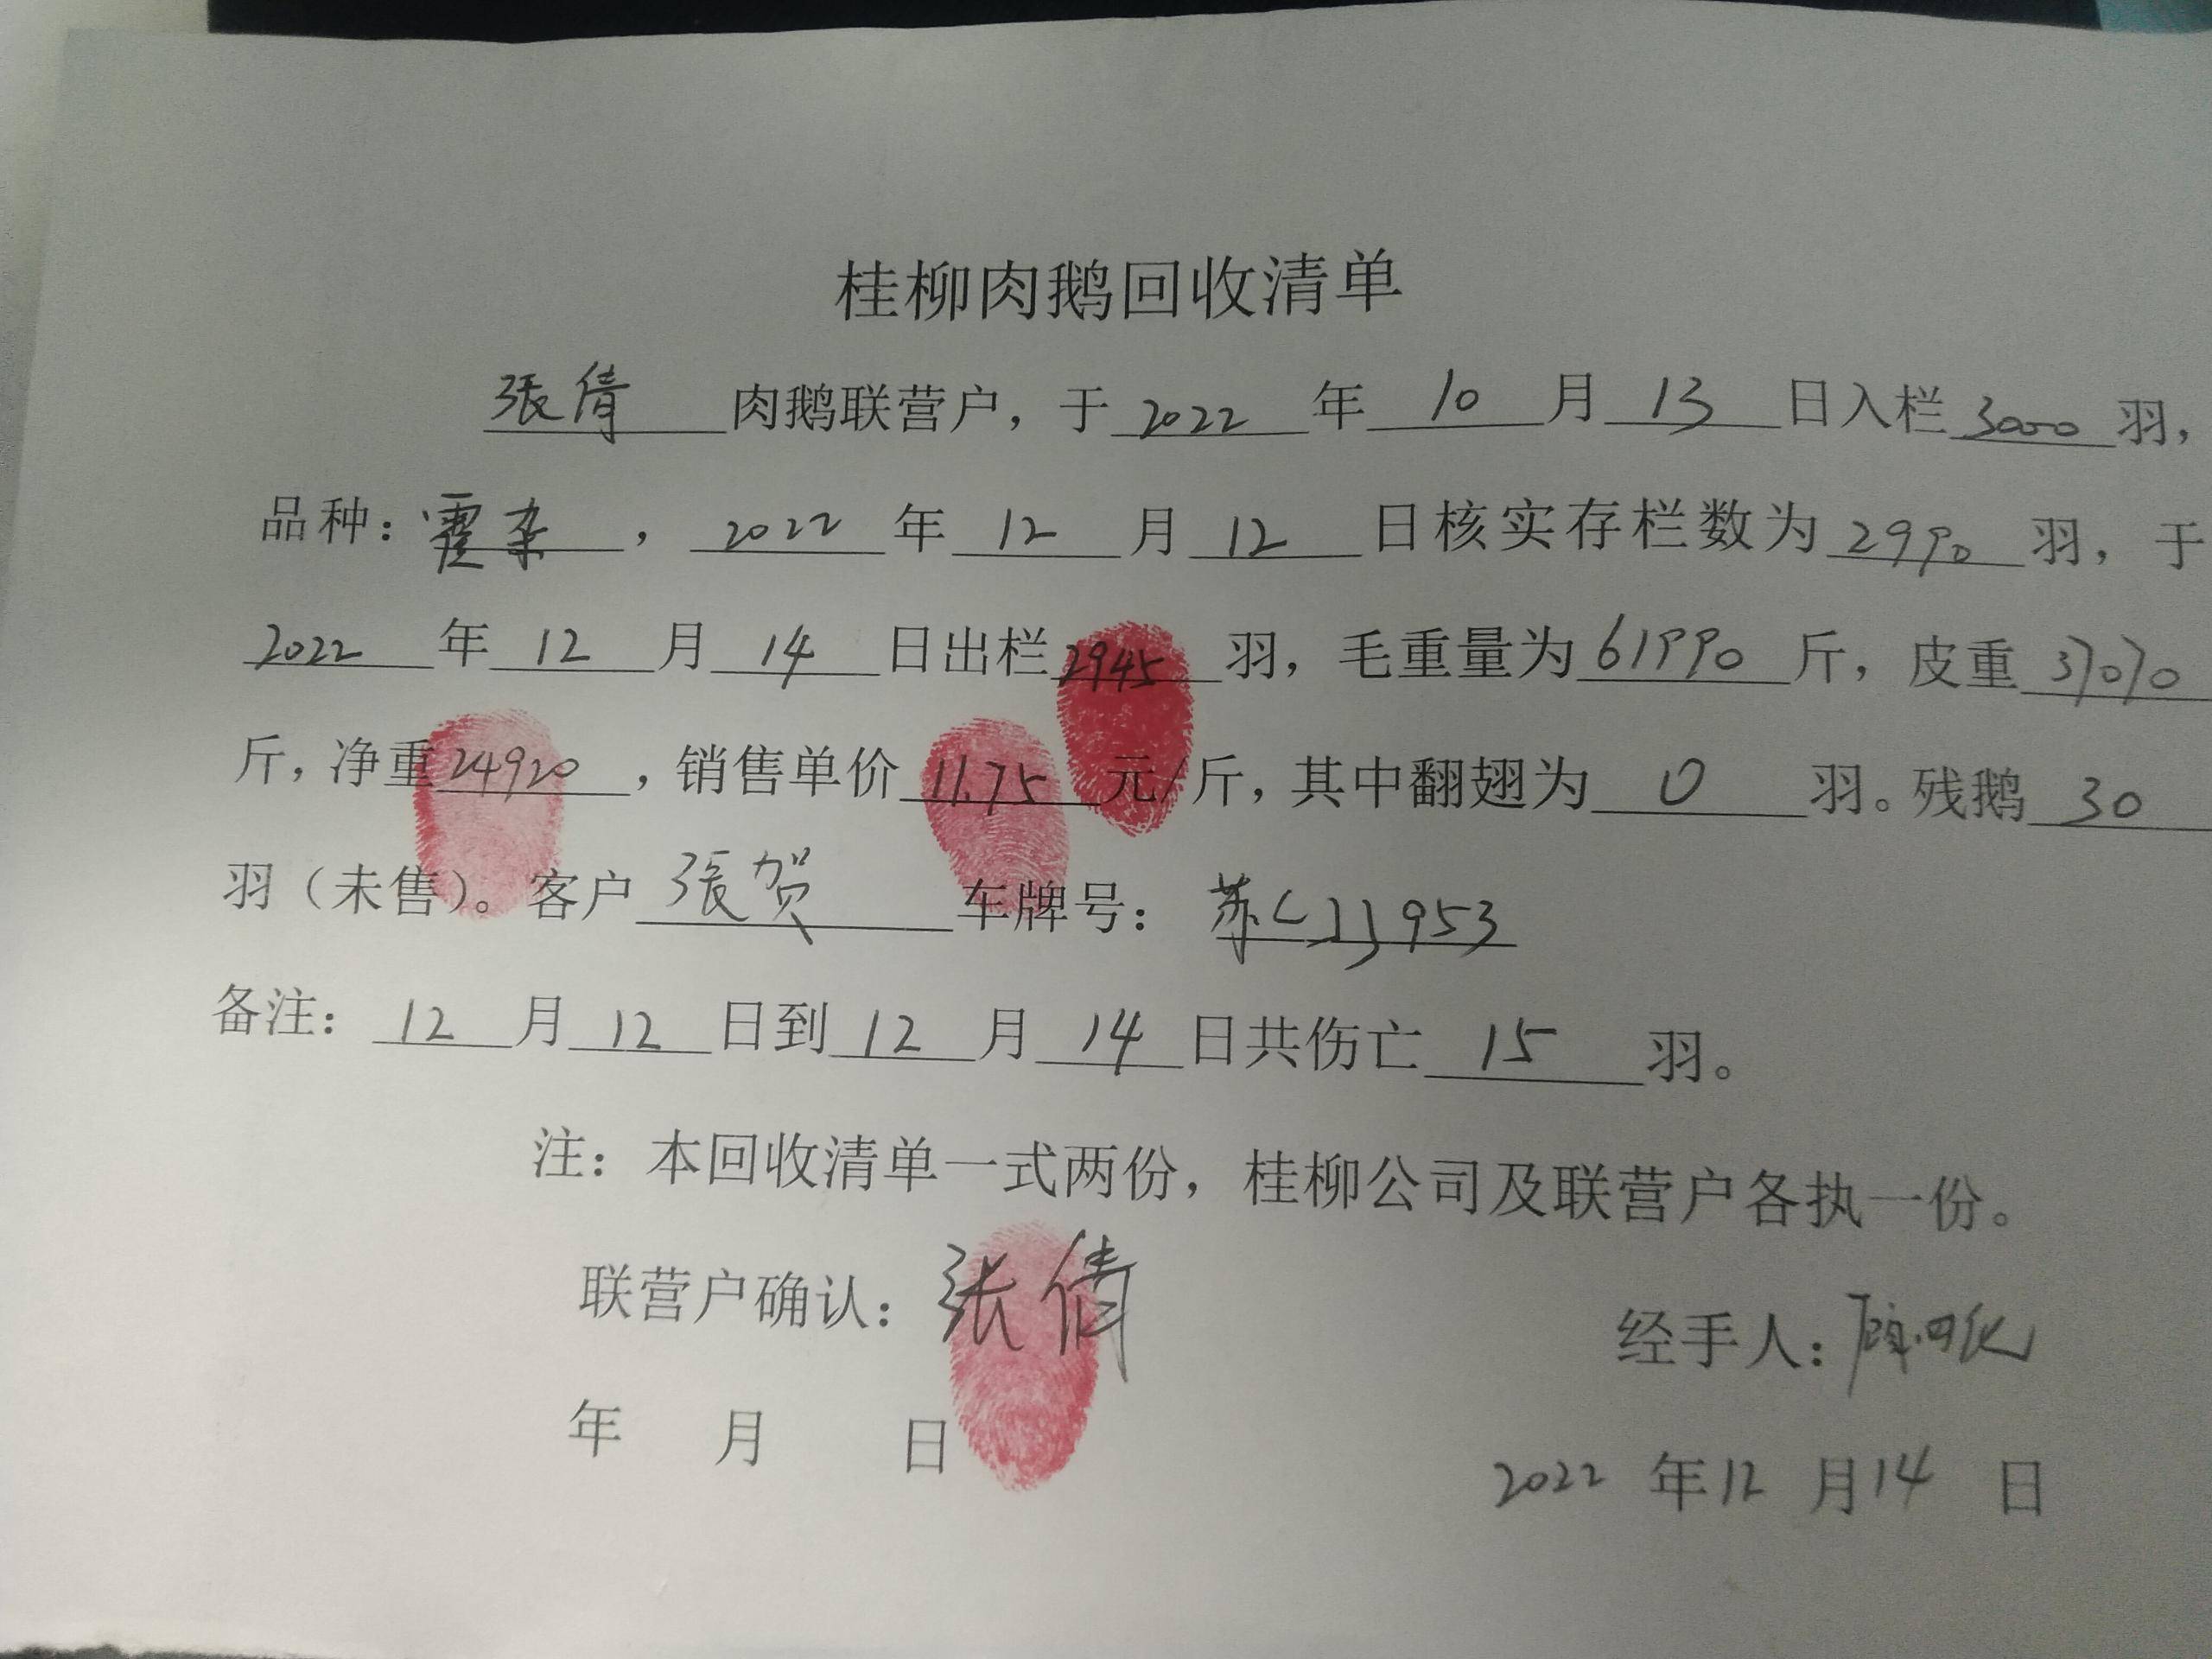 桂柳肉鹅回收清单
张倩 肉鹅联营户，于 2022 年 10 月 13 日入栏 3000 羽，
品种：霍杂，2022 年 12 月 12 日核实存栏数为 2990 羽，于
2022 年 12 月 14 日出栏 2945 羽，毛重量为 61990 斤，皮重 37070
斤，净重 24920，销售单价 11.75 元/斤，其中翻翅为 0 羽。残鹅 30
羽（未售）。客户 张贺 车牌号：苏CJJ953
备注：12 月 12 日到 12 月 14 日共伤亡 15 羽。
注：本回收清单一式两份，桂柳公司及联营户各执一份。
联营户确认：张倩
经手人：
年 月 日
2022 年 12 月 14 日